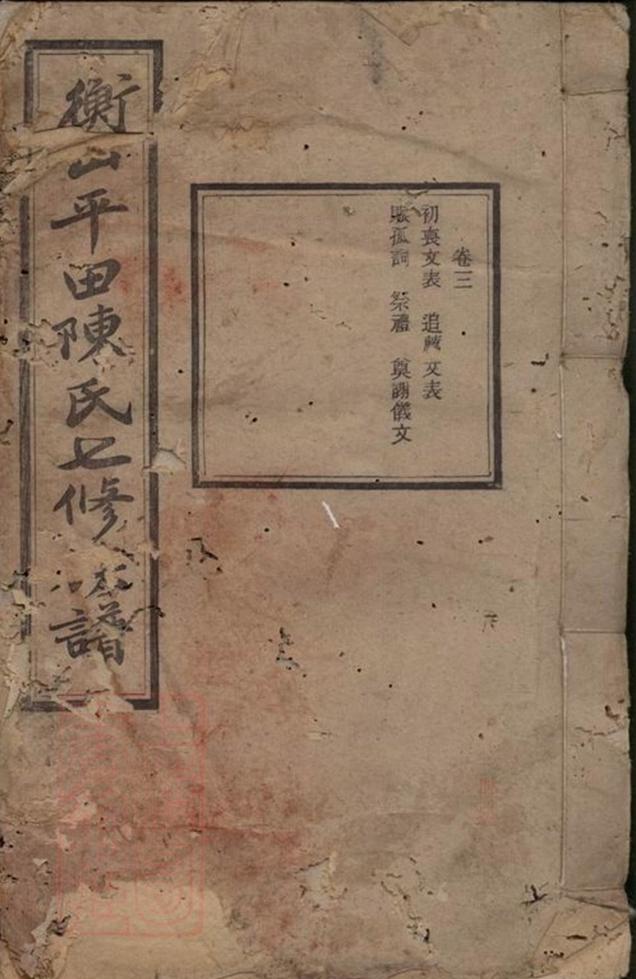 衡山平田陳氏七修族譜
卷三
初喪文表 追薦文表
賑孤詞 祭禮 奠謝儀文